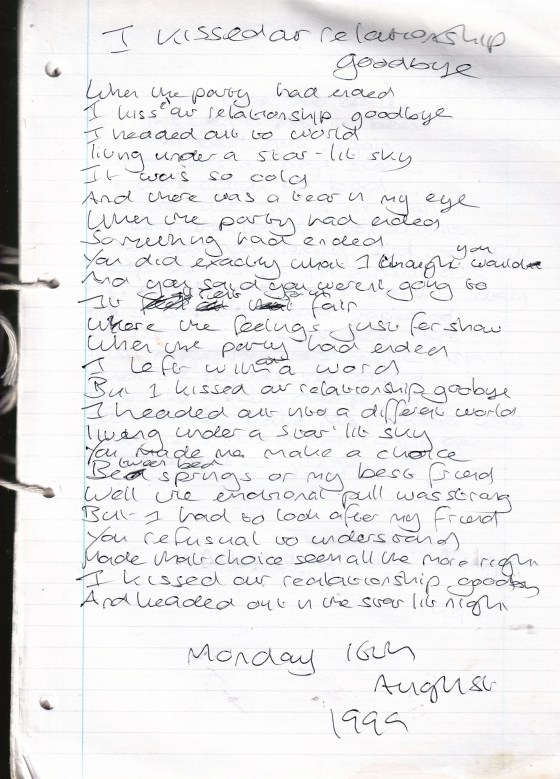 I kissed our relationship
goodbye
When the party had ended
I kiss our relationship goodbye
I headed out to world
living under a star-lit sky
It was so cold
And there was a tear in my eye
When the party had ended
Something had ended
You did exactly what I thought you would
And you said you weren't going to
It fair
Where the feelings just for show
When the party had ended
I left without a word
But I kissed our relationship goodbye
I headed out into a different world
living under a star lit sky
You made me make a choice
Between bed springs or my best friend
Well the emotional pull was strong
But I had to look after my friend
You refusual to understand
Made that choice seem all the more right
I kissed our realationship goodbye
And headed out in the star lit night
Monday 16th
August
1999